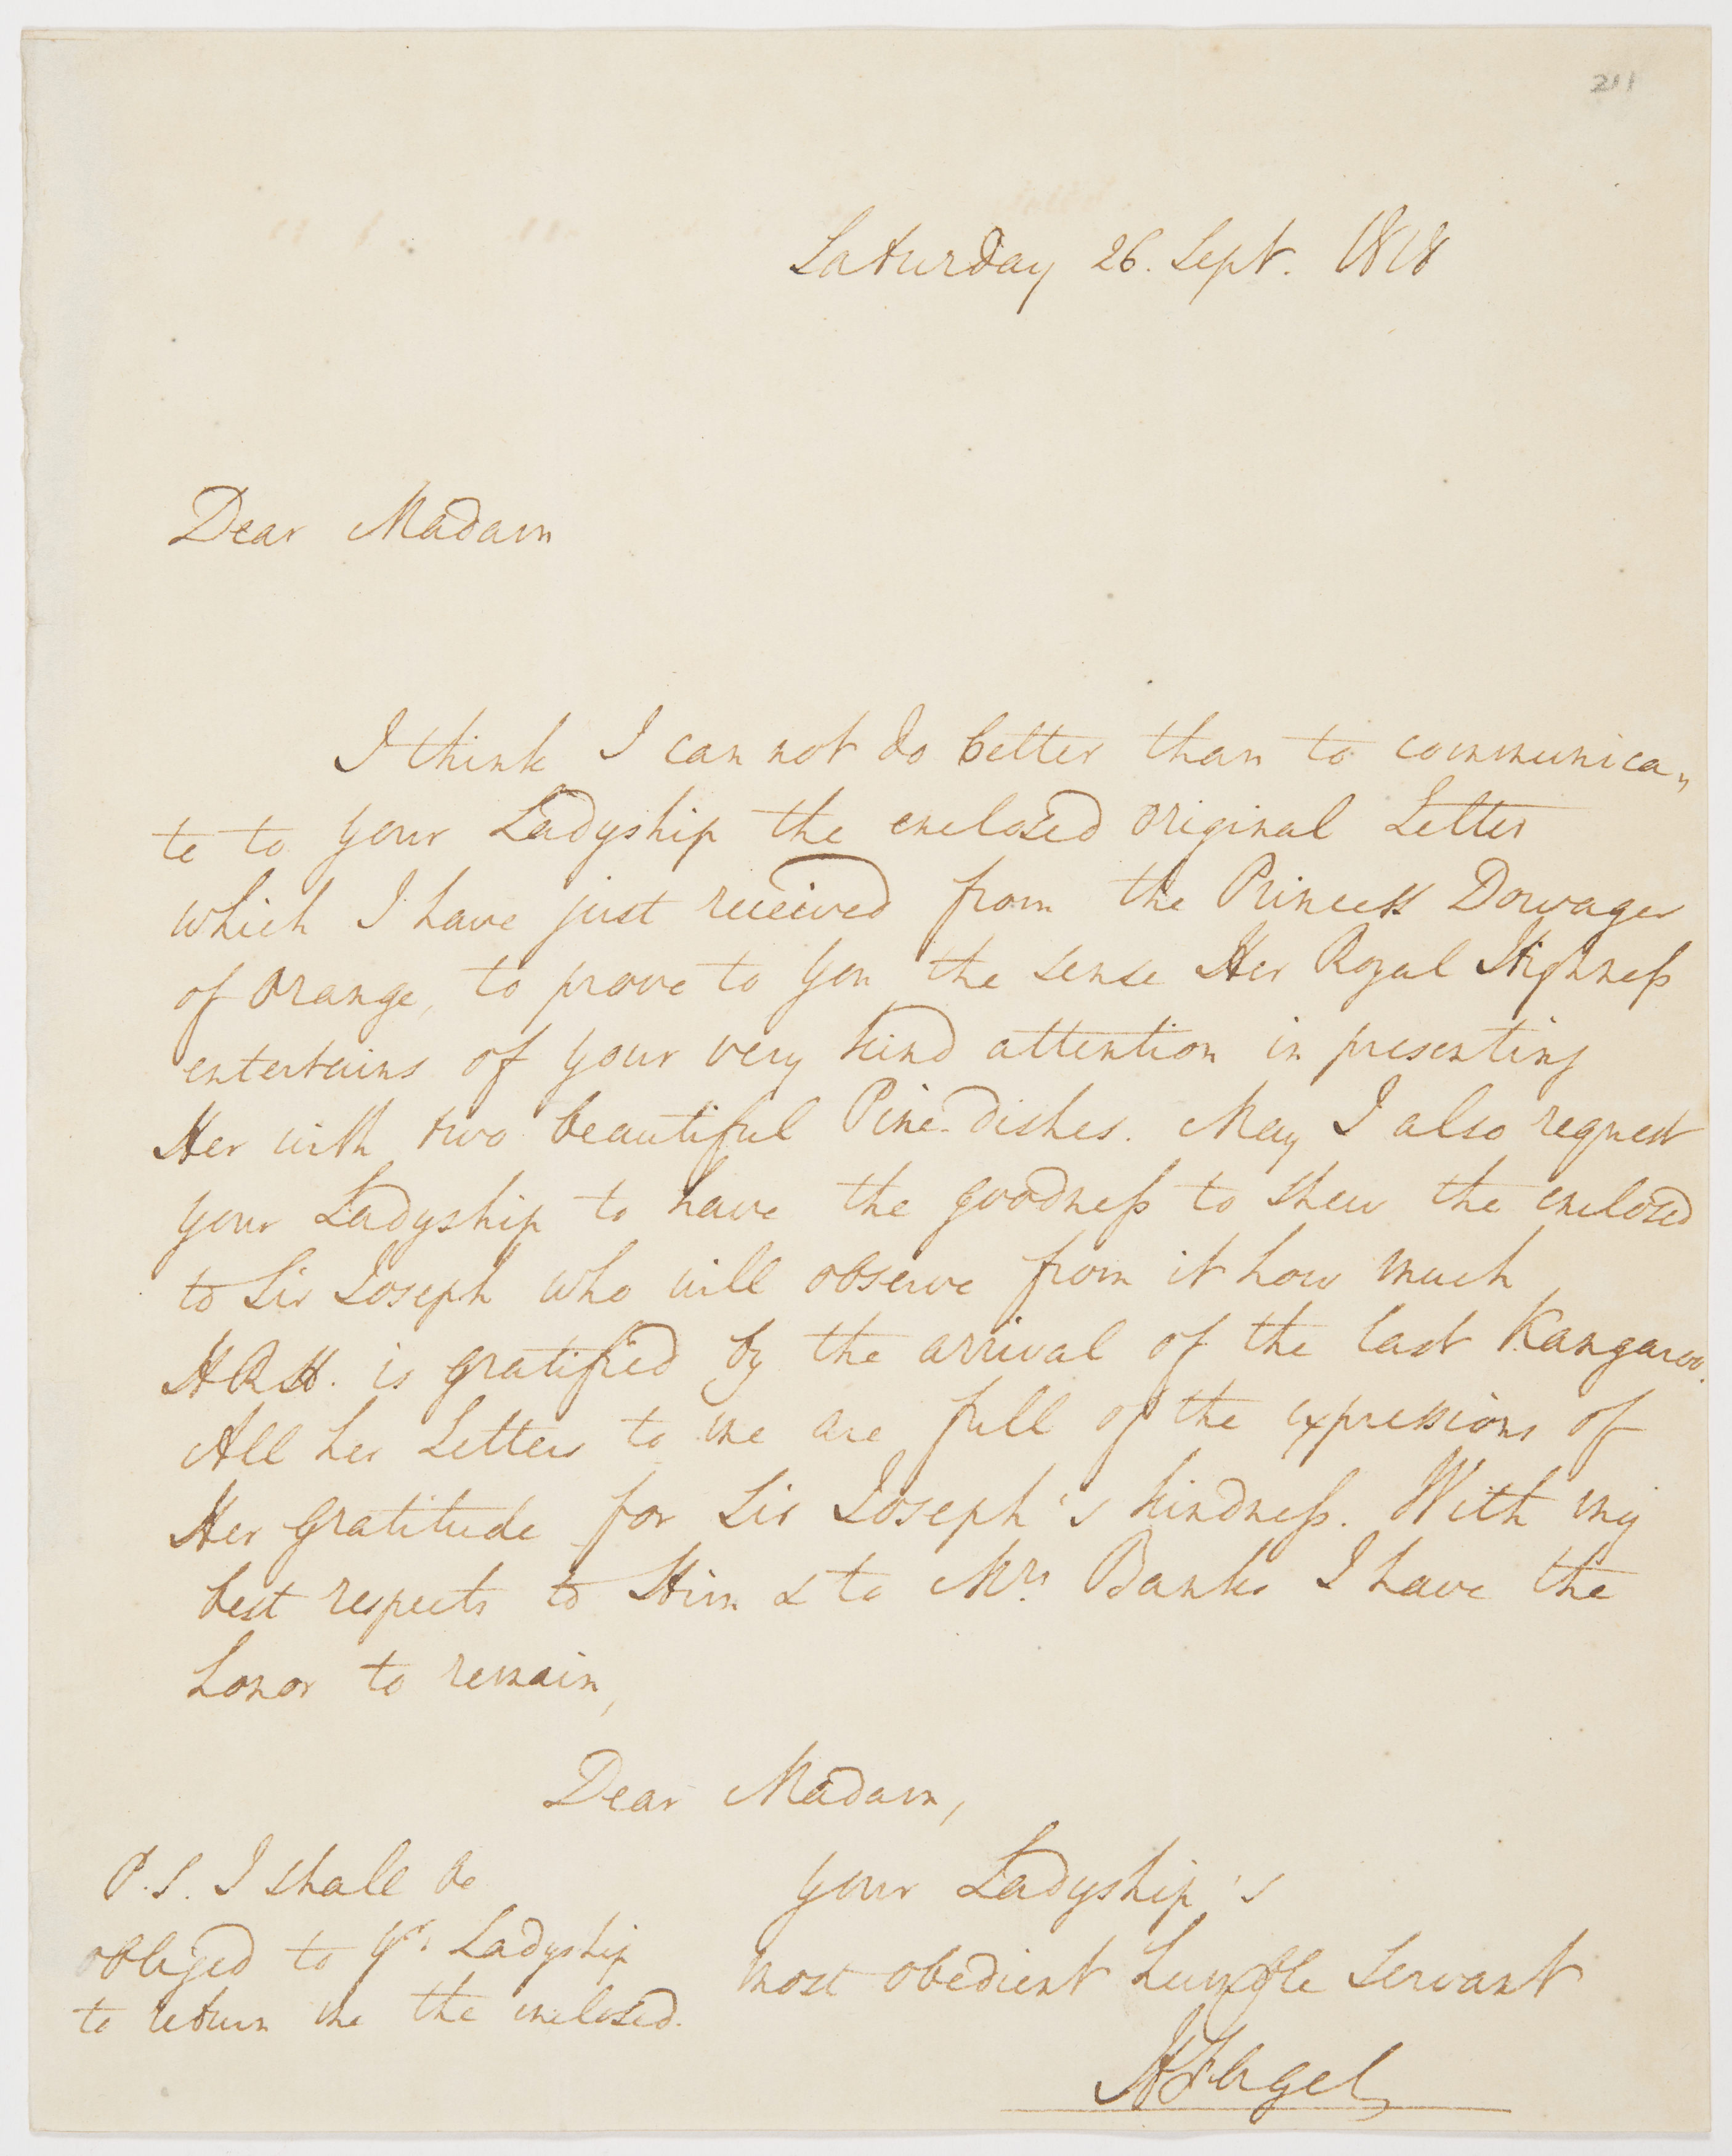 211
Saturday 26. Sept. 1818
Dear Madam
I think I can not do better than to communica„
te to your Ladyship the enclosed original Letter
which I have just received from the Princess Dowager
of Orange, to prove to you the sense Her Royal Highness
entertains of your very kind attention in presenting
Her with two beautiful Pine-dishes. May I also request
your Ladyship to have the goodness to shew the enclosed
to Sir Joseph who will observe from it how much
H.R.H. is gratified by the arrival of the last Kangaroo.
All her Letters to me are full of the expressions of
Her gratitude for Sir Joseph's kindness. With my
best respects to Him & to Mrs. Banks I have the
honor to remain,
Dear Madam,
your Ladyship's
most obedient humble Servant
HFagel
P.S. I shall be
obliged to yr. Ladyship
to return me the enclosed.